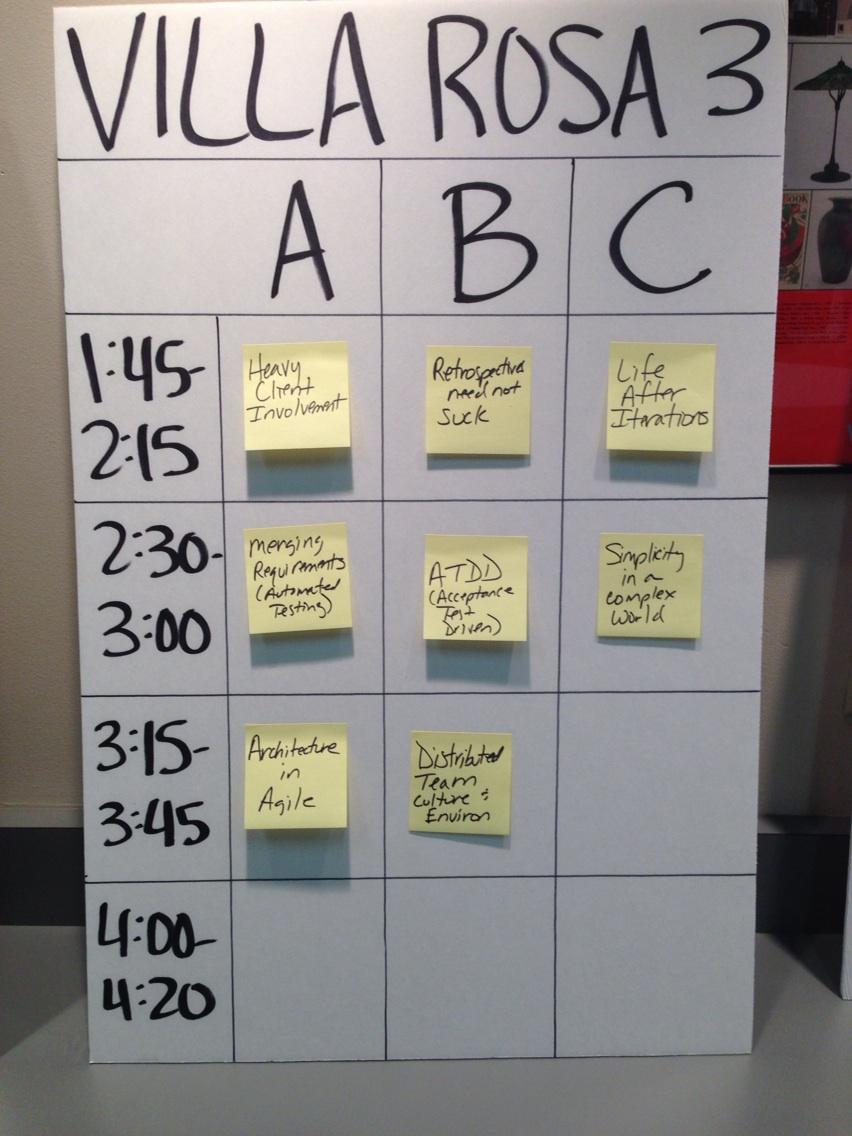 VILLA ROSA 3
A B C
1:45-
2:15
Heavy
Client
Involvement
Retrospectives
need not
Suck
Life
After
Iterations
2:30-
3:00
Merging
Requirements
(Automated
Testing)
ATDD
(Acceptance
Test
Driven)
Simplicity
in a
complex
World
3:15-
3:45
Architecture
in
Agile
Distributed
Team
Culture &
Environ
4:00-
4:20
BOOK